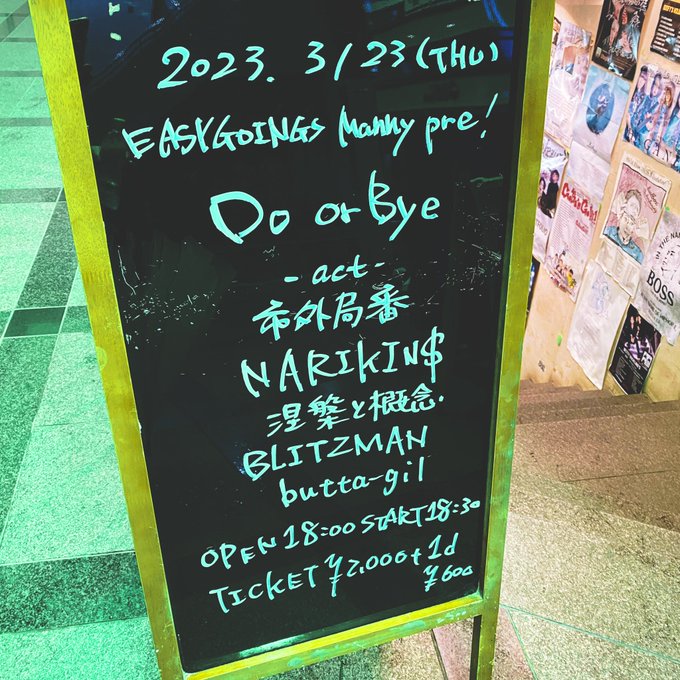 2023. 3/23(THU)
EASYGOINGS Manny pre!
Do or Bye
-act-
市外局番
NARIKIN$
涅槃と概念.
BLITZMAN
butta-gil
OPEN 18:00 START 18:30
TICKET ¥2,000+1d
¥600
IN THE NA
BOSS